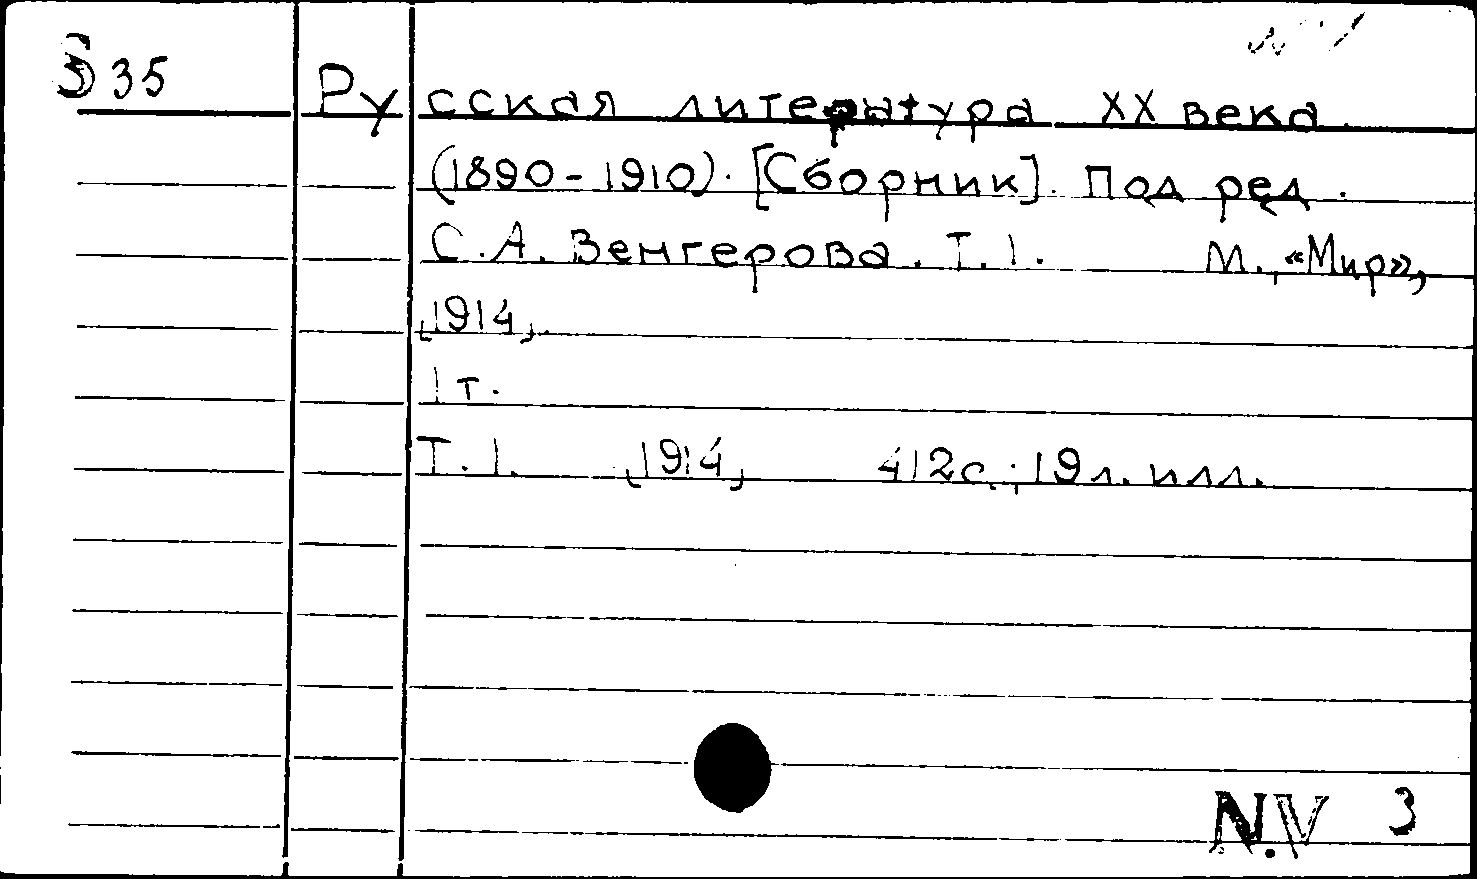 S35
Русская литература XX века
(1890-1910). [Сборник]. Под ред.
С.А. Венгерова. Т.1. М., «Мир»,
[1914].
1 т.
Т.1. [1914] 412с.; 19 л. илл.
N.V 3